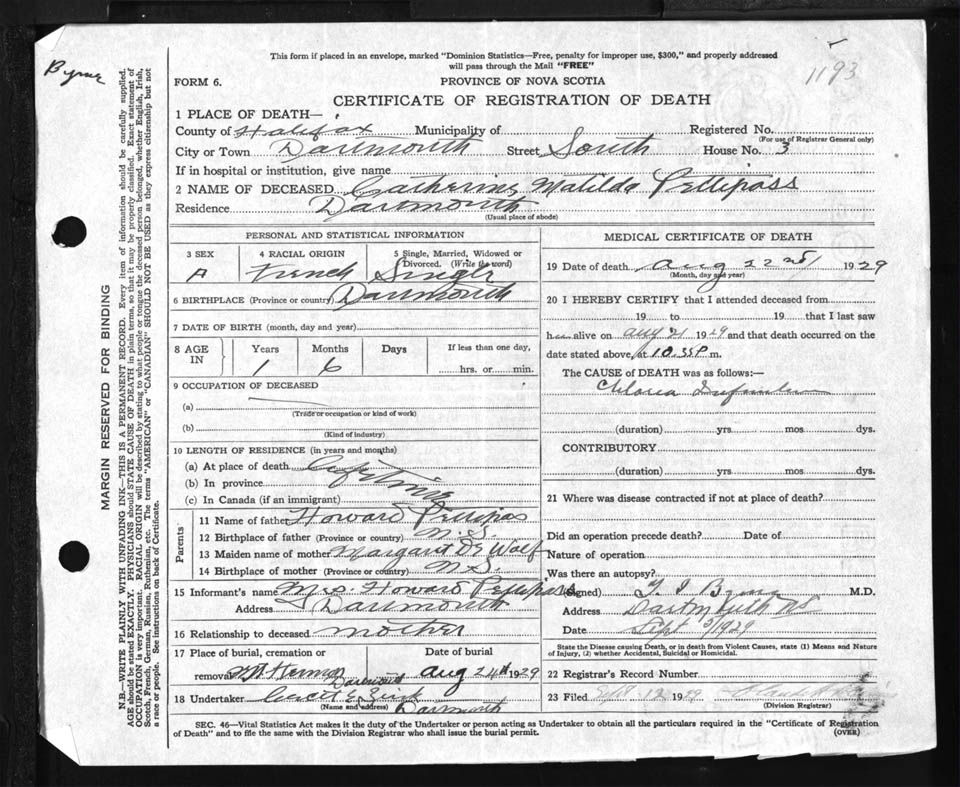 This form if placed in an envelope, marked "Dominion Statistics—Free, penalty for improper use, $300," and properly addressed
will pass through the Mail "FREE"
Byrne
1193
FORM 6.
PROVINCE OF NOVA SCOTIA
CERTIFICATE OF REGISTRATION OF DEATH
MARGIN RESERVED FOR BINDING
N.B.—WRITE PLAINLY WITH UNFADING INK—THIS IS A PERMANENT RECORD. Every item of information should be carefully supplied.
AGE should be stated EXACTLY. PHYSICIANS should STATE CAUSE OF DEATH in plain terms, so that it may be properly classified. Exact statement of
OCCUPATION is very important. RACIAL ORIGIN will be described by stating to what people or tongue the deceased person belonged, whether English, Irish,
Scotch, French, German, Russian, Ruthenian, etc. The terms "AMERICAN" or "CANADIAN" SHOULD NOT BE USED as they express citizenship but not
a race or people. See instructions on back of Certificate.
1 PLACE OF DEATH—
County of Halifax Municipality of Registered No.
(For use of Registrar General only)
City or Town Dartmouth Street South House No. 3
If in hospital or institution, give name
2 NAME OF DECEASED Catherine Matilda Pettipass
Residence Dartmouth
(Usual place of abode)
PERSONAL AND STATISTICAL INFORMATION
3 SEX 4 RACIAL ORIGIN 5 Single, Married, Widowed or
Divorced. (Write the word)
French Single
6 BIRTHPLACE (Province or country) Dartmouth
7 DATE OF BIRTH (month, day and year)
8 AGE IN Years Months Days If less than one day,
1 6 hrs. or min.
9 OCCUPATION OF DECEASED
(a)
(Trade or occupation or kind of work)
(b)
(Kind of industry)
10 LENGTH OF RESIDENCE (in years and months)
(a) At place of death Lifetime
(b) In province
(c) In Canada (if an immigrant)
Parents
11 Name of father Howard Pettipas
12 Birthplace of father (Province or country) N.S.
13 Maiden name of mother Margaret De Wolf
14 Birthplace of mother (Province or country) N.S.
15 Informant's name Mrs. Howard Pettipass
Address Dartmouth
16 Relationship to deceased mother
17 Place of burial, cremation or Date of burial
removal Mt Hermon Dartmouth Aug 24th 1929
18 Undertaker
(Name and address) Dartmouth
MEDICAL CERTIFICATE OF DEATH
19 Date of death Aug 22nd 1929
(Month, day and year)
20 I HEREBY CERTIFY that I attended deceased from
19 to 19 that I last saw
h alive on Aug 21 1929 and that death occurred on
date stated above, at 10.35 P m.
The CAUSE of DEATH was as follows:—
Cholera Infantum
(duration) yrs. mos dys.
CONTRIBUTORY
(duration) yrs. mos. dys.
21 Where was disease contracted if not at place of death?
Did an operation precede death? Date of
Nature of operation
Was there an autopsy?
(Signed) Byrne M.D.
Address Dartmouth NS
Date Sept 5/1929
State the Disease causing Death, or in death from Violent Causes, state (1) Means and Nature
of Injury, (2) whether Accidental, Suicidal or Homicidal.
22 Registrar's Record Number
23 Filed Sept 12 1929
(Division Registrar)
SEC. 46—Vital Statistics Act makes it the duty of the Undertaker or person acting as Undertaker to obtain all the particulars required in the "Certificate of Registration
of Death" and to file the same with the Division Registrar who shall issue the burial permit.
(OVER)